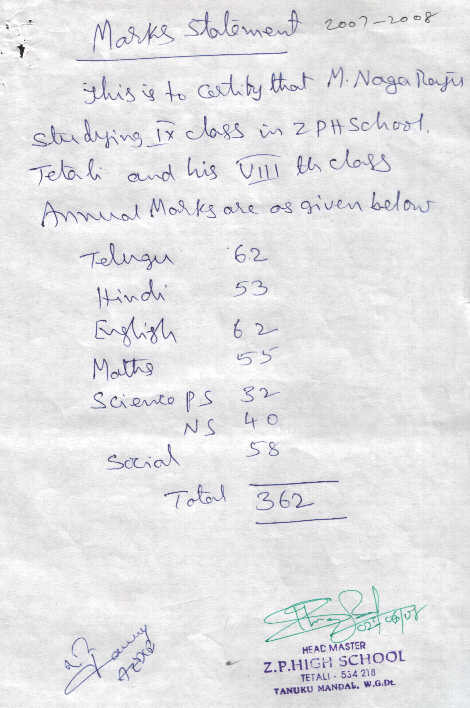 Marks Statement 2007-2008
This is to certify that M. Naga Raju
studying IX class in Z P H School,
Tetali and his VIII th class
Annual Marks are as given below
Telugu 62
Hindi 53
English 62
Maths 55
Science PS 32
NS 40
Social 58
Total 362
HEAD MASTER
Z.P.HIGH SCHOOL
TETALI - 534 218
TANUKU MANDAL, W.G.Dt.